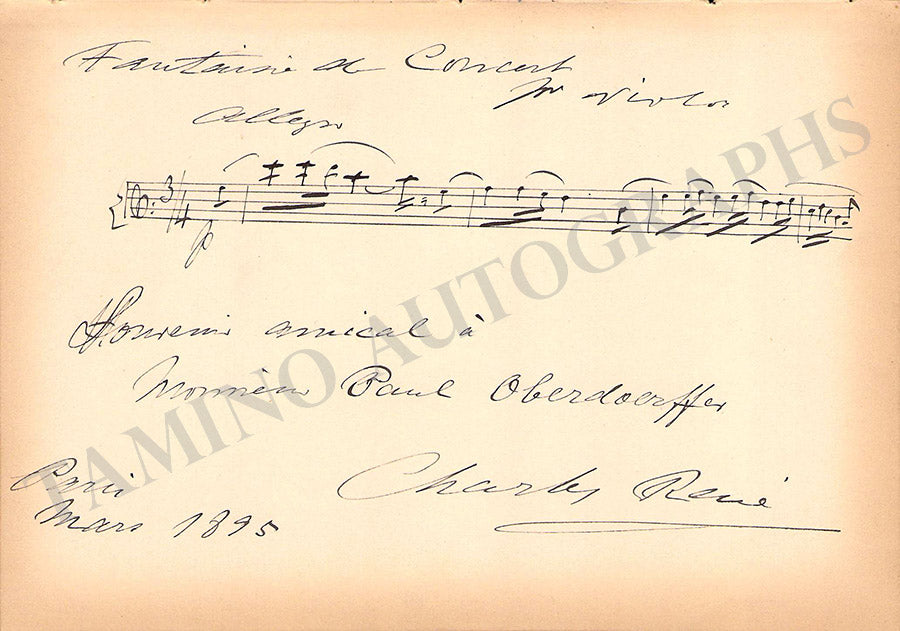 Fantaisie de Concert
pr violon
Allegro
3/4
p
Souvenir amical à
Monsieur Paul Oberdoerffer
Charles René
Paris
Mars 1895
TAMINO AUTOGRAPHS